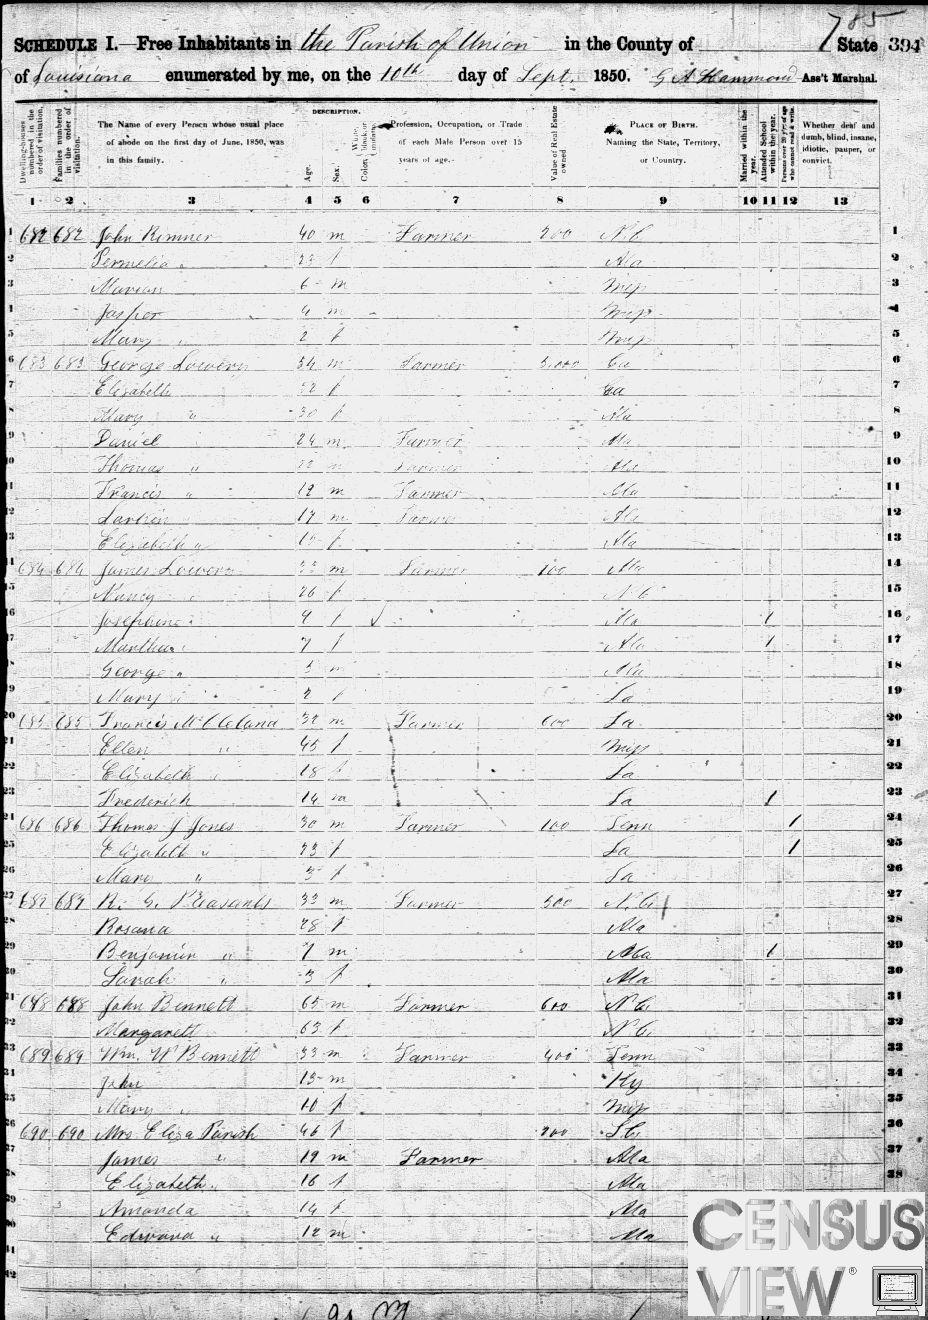 785
SCHEDULE I.—Free Inhabitants in the Parish of Union in the County of State 394
of Louisiana enumerated by me, on the 10th day of Sept. 1850. G A Hammond Ass't Marshal.
Dwelling-houses numbered in the order of visitation.
Families numbered in the order of visitation.
The Name of every Person whose usual place of abode on the first day of June, 1850, was in this family.
DESCRIPTION.
Age.
Sex.
Color, White, black, or mulatto.
Profession, Occupation, or Trade of each Male Person over 15 years of age.
Value of Real Estate owned
PLACE OF BIRTH. Naming the State, Territory, or Country.
Married within the year.
Attended School within the year.
Persons over 20 y'rs of age who cannot read & write.
Whether deaf and dumb, blind, insane, idiotic, pauper, or convict.
1 2 3 4 5 6 7 8 9 10 11 12 13
1 682 682 John 40 m Farmer 200 N.C 1
2 Permelia " 23 f Ala 2
3 Marion 6 m Miss 3
4 Jasper 4 m Miss 4
5 Mary " 2 f Miss 5
6 683 683 George Lowery 54 m Farmer 3,000 Ga 6
7 Elizabeth 52 f Ga 7
8 Mary " 30 f Ala 8
9 Daniel 24 m Farmer Ala 9
10 Thomas " 22 m Farmer Ala 10
11 Francis " m Farmer Ala 11
12 Larkin 17 m Farmer Ala 12
13 Elizabeth " 15 f Ala 13
14 684 684 James Lowery 33 m Farmer 100 Ala 14
15 Nancy " 26 f N.C 15
16 Josephine " 9 f Ala 1 16
17 Martha " 7 f Ala 1 17
18 George " m Ala 18
19 Mary " 2 f La 19
20 685 685 Francis McCleland 32 m Farmer 600 La 20
21 Ellen " 45 f Miss 21
22 Elizabeth " 18 f La 22
23 Frederich 14 m La 1 23
24 686 686 Thomas J Jones 30 m Farmer 100 Tenn 1 24
25 Elizabeth " 23 f La 1 25
26 Mary " 3 f La 26
27 687 687 R. G. Pleasants 33 m Farmer 500 N.C. 27
28 Rosana 28 f Ala 28
29 Benjamin " 7 m Ala 1 29
30 Sarah " 3 f Ala 30
31 688 688 John Bennett 65 m Farmer 600 N.C. 31
32 Margarett 63 f N.C. 32
33 689 689 Wm. W Bennett 33 m Farmer 400 Tenn 33
34 John 13 m Ky 34
35 Mary " 10 f Miss 35
36 690 690 Mrs Eliza Parish 46 f 200 S.C. 36
37 James " 19 m Farmer Ala 37
38 Elizabeth " 16 f Ala 38
39 Amanda 14 f Ala
40 Edward " 12 m Ala
41
42
CENSUS
VIEW®